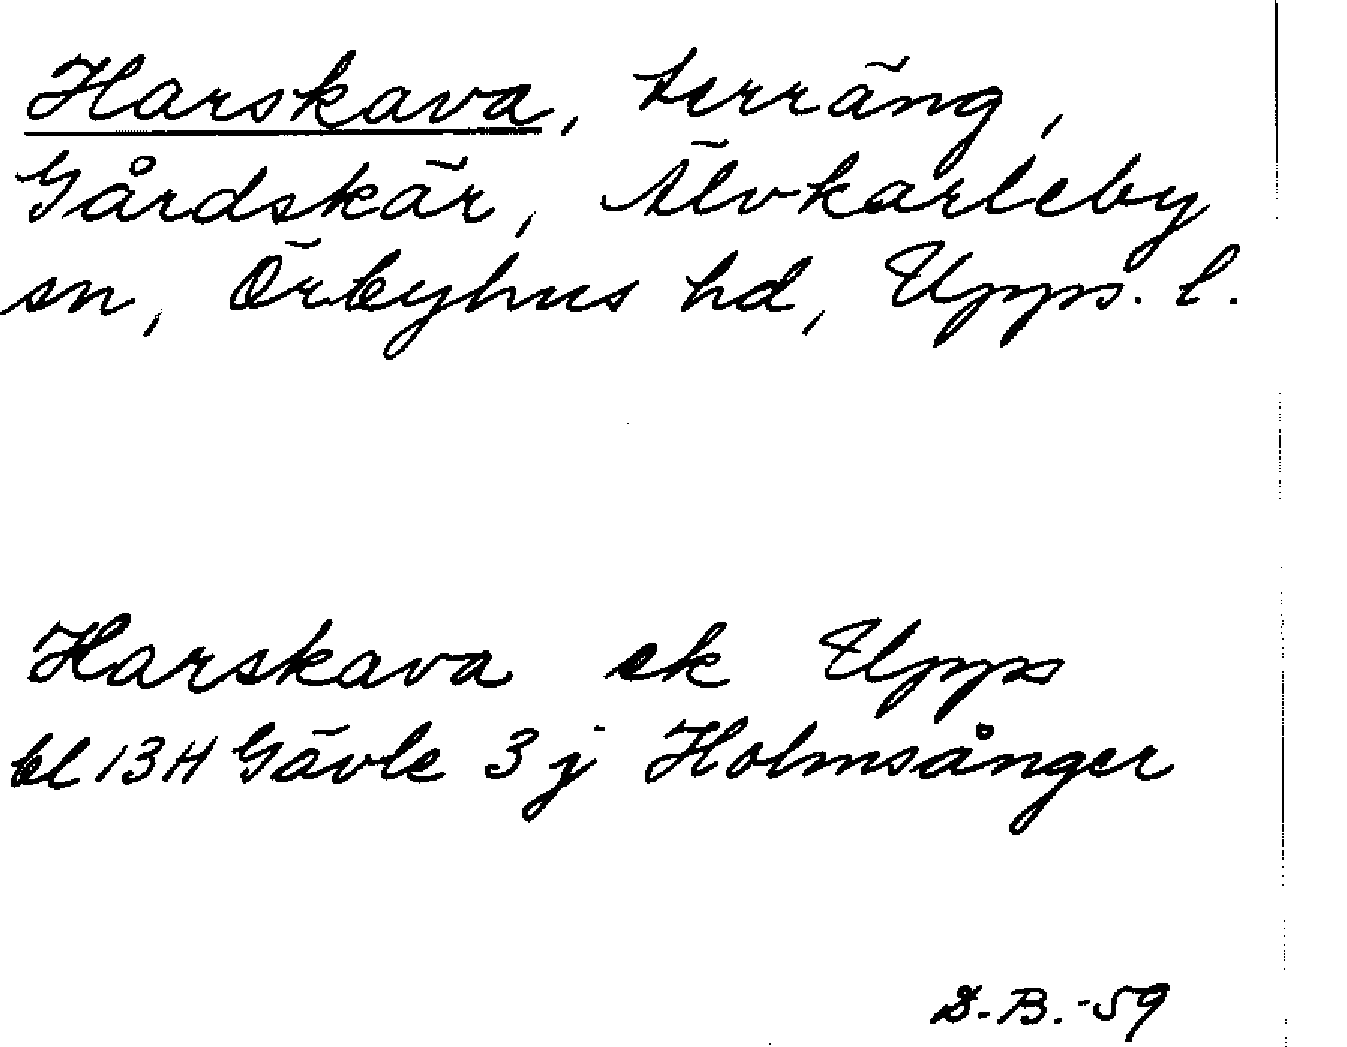 Harskava, terräng,
Gårdskär, Älvkarleby
sn, Örbyhus hd, Upps. l.
Harskava ek Upps
bl 13H Gävle 3j Holmsånger
S.B.-59